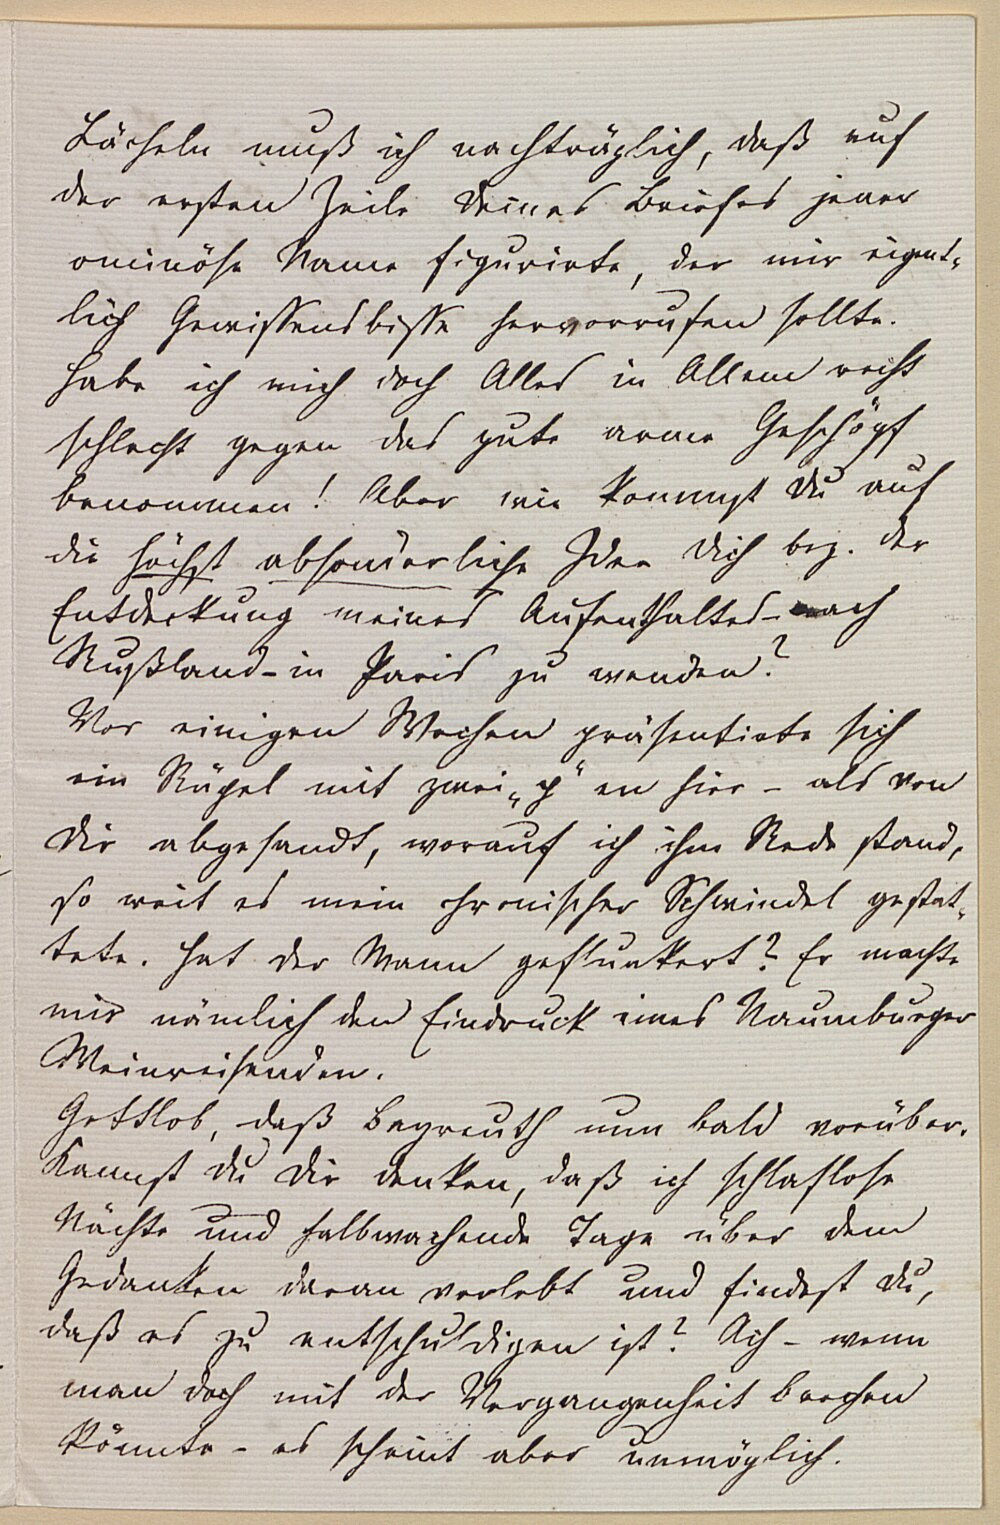 Lächeln muß ich nachträglich, daß auf
der ersten Zeile Deines Briefes jener
ominöse Name figurirte, der mir eigent-
lich Gewissensbisse hervorrufen sollte.
Habe ich mich doch Alles in Allem recht
schlecht gegen das gute arme Geschöpf
benommen! Aber wie kommst Du auf
die höchst absonderliche Idee Dich bez. der
Entdeckung meines Aufenthaltes - nach
Rußland - in Paris zu wenden?
Vor einigen Wochen präsentirte sich
ein Rüpel mit zwei „p“ en hier - als von
Dir abgesandt, worauf ich ihm Rede stand,
so weit es mein chronischer Schwindel gestat-
tete. Hat der Mann geflunkert? Er machte
mir nämlich den Eindruck eines Naumburger
Weinreisenden.
Gottlob, daß Bayreuth nun bald vorüber.
Kannst Du Dir denken, daß ich schlaflose
Nächte und halbwachende Tage über dem
Gedanken daran verlebt und findest Du,
daß es zu entschuldigen ist? Ach - wenn
man doch mit der Vergangenheit brechen
könnte - es scheint aber unmöglich.